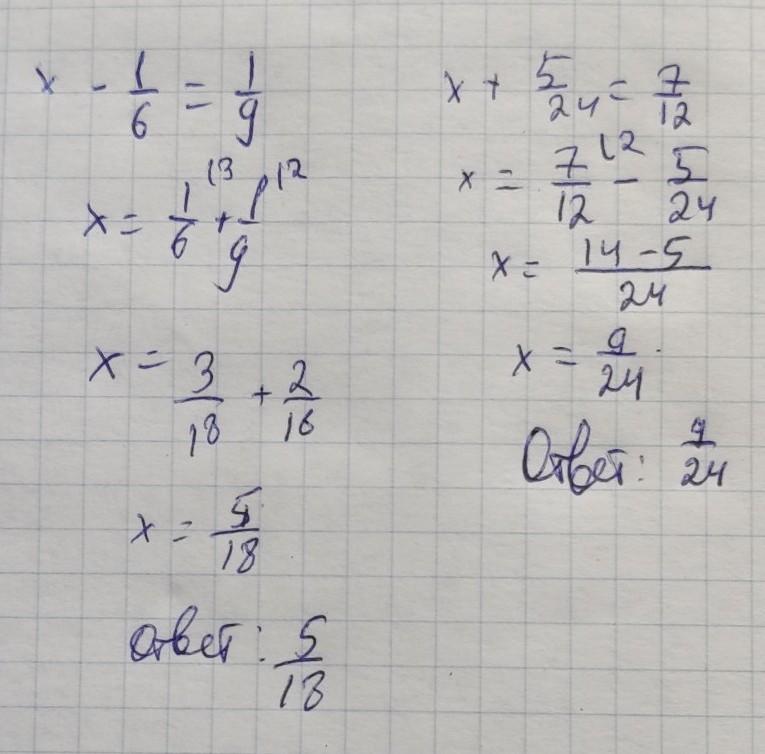 x - 1/6 = 1/9
x = 1/6 |3 + 1/9 |2
x = 3/18 + 2/18
x = 5/18
Ответ: 5/18
x + 5/24 = 7/12
x = 7/12 |2 - 5/24
x = 14-5/24
x = 9/24
Ответ: 9/24